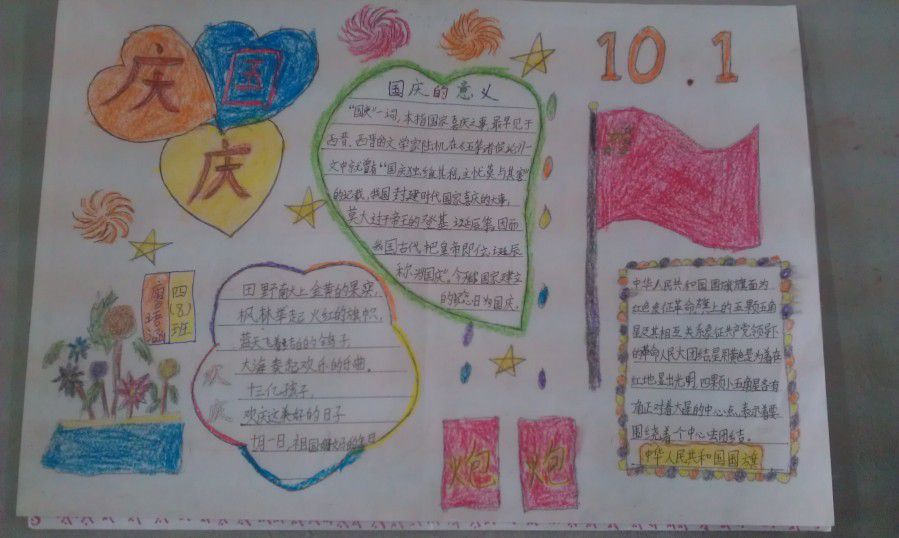 庆
国
庆
10.1
国庆的意义
"国庆"一词，本指国家喜庆之事，最早见于
西晋。西晋的文学家陆机在《五等诸侯论》一
文中就曾有"国庆独飨其利，主忧莫与其害"
的记载，我国封建时代国家喜庆的大事，
莫大过于帝王的登基、诞辰等。因而
我国古代把皇帝即位、诞辰
称为"国庆"。今天称国家建立
的纪念日为国庆。
四(8)班
田野献上金黄的果实，
枫林举起火红的旗帜，
蓝天飞着洁白的鸽子
大海奏起欢乐的乐曲。
十三亿孩子，
欢庆这美好的日子
十月一日，祖国妈妈的生日
欢
庆
炮
炮
中华人民共和国国旗旗面为
红色象征革命旗上的五颗五角
星及其相互关系象征共产党领导下
的革命人民大团结星用黄色是为着在
红地显出光明，四颗小五角星各有一
角正对着大星的中心点，表示着要
围绕着一个中心去团结。
中华人民共和国国旗